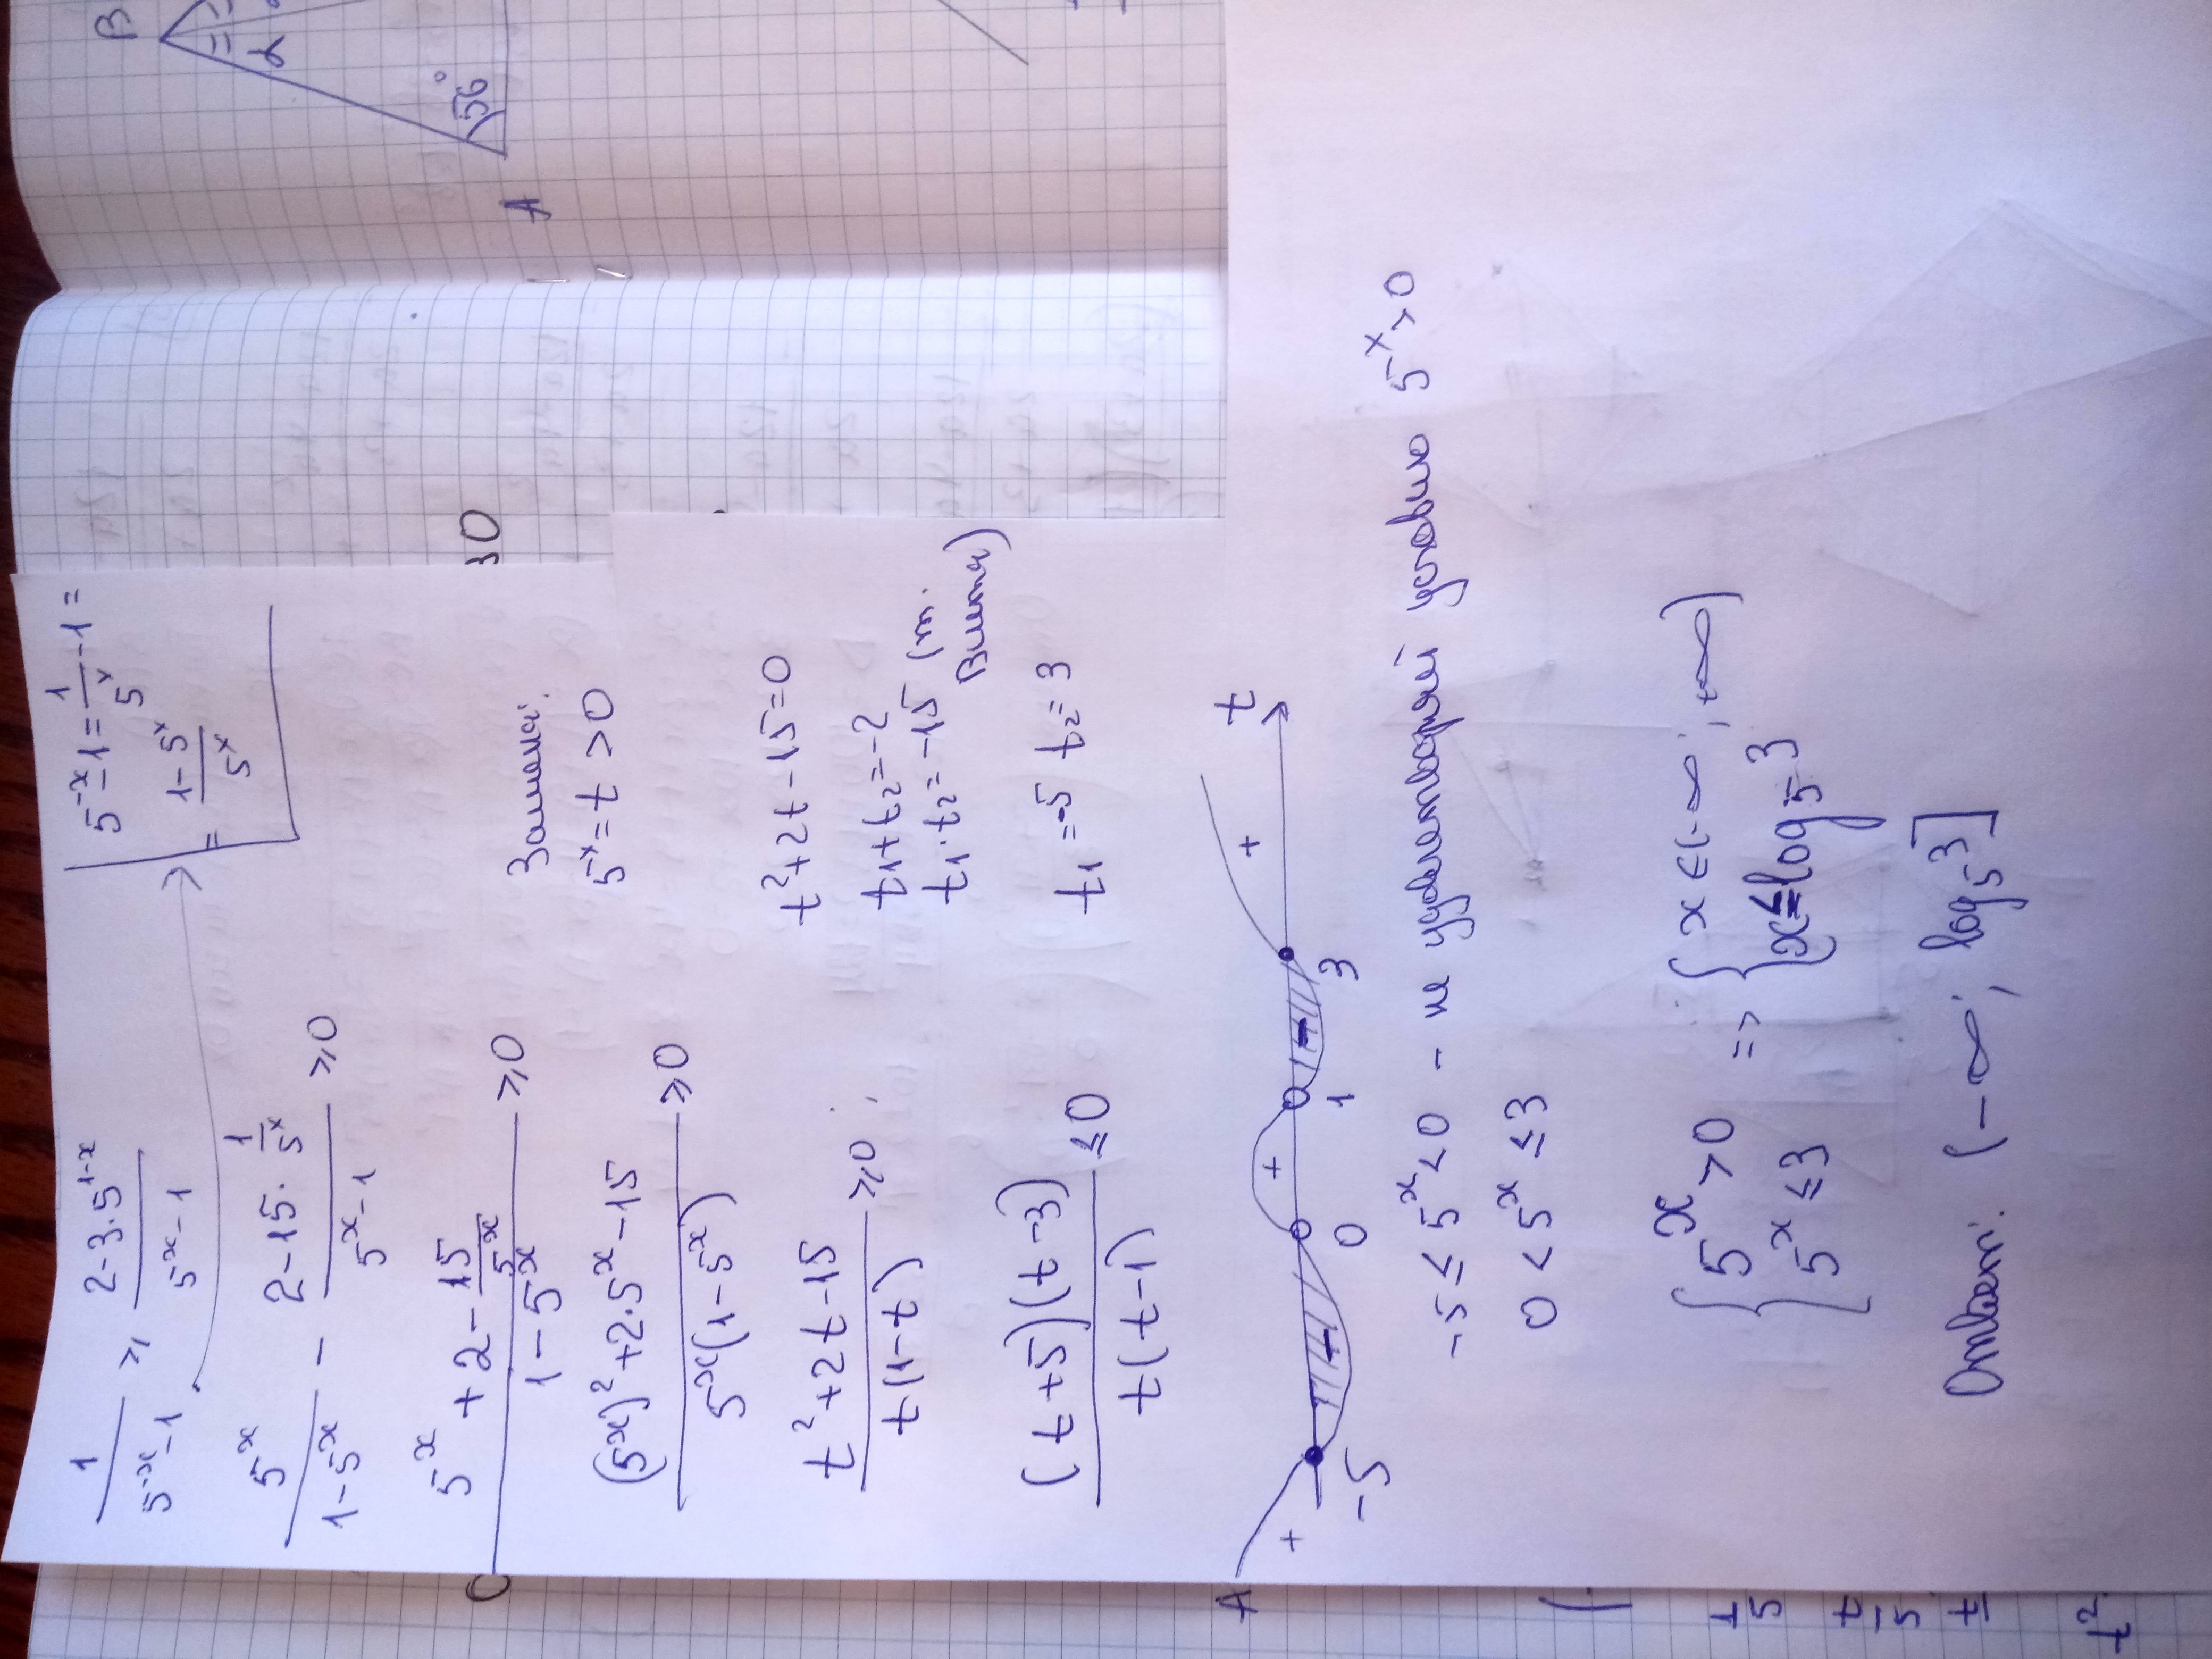 1/(5^-x - 1) ≥ (2 - 3·5^(1-x))/(5^x - 1)
5^-x - 1 = 1/5^x - 1 =
= (1 - 5^x)/5^x
5^x/(1 - 5^x) - (2 - 15·1/5^x)/(5^x - 1) ≥ 0
(5^x + 2 - 15/5^x)/(1 - 5^x) ≥ 0
((5^x)² + 2·5^x - 15)/(5^x(1 - 5^x)) ≥ 0
Замена:
5^x = t > 0
(t² + 2t - 15)/(t(1 - t)) ≥ 0
t² + 2t - 15 = 0
t1 + t2 = -2
t1 · t2 = -15 (т. Виета)
t1 = -5 t2 = 3
((t + 5)(t - 3))/(t(t - 1)) ≤ 0
+ - + - + t
-5 0 1 3
-5 ≤ 5^x < 0 - не удовлетворяет условию 5^x > 0
0 < 5^x ≤ 3
{ 5^x > 0 => { x ∈ (-∞; +∞)
{ 5^x ≤ 3 { x ≤ log5 3
Ответ: (-∞; log5 3]
B
α
56°
A
30
C
A
t
5
t
5
t
t²